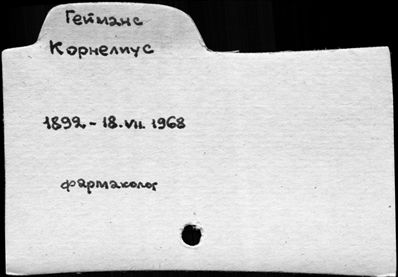 Гейманс
Корнелиус
1892 - 18.VII. 1968
фармаколог